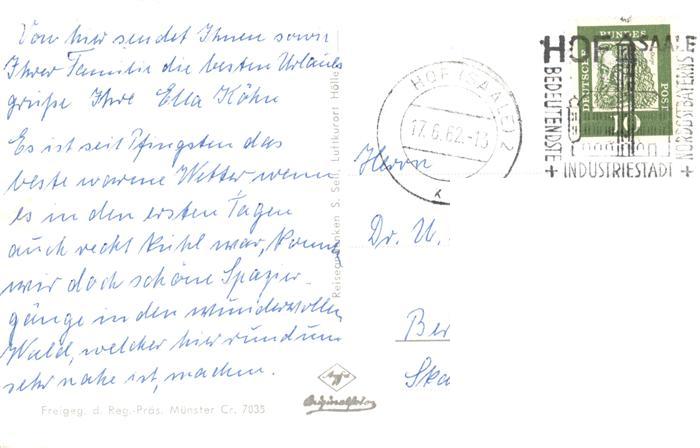 Von hier sendet Ihnen sowie
Ihrer Familie die besten Urlaubs
grüße Ihre Ella Köhn
Es ist seit Pfingsten das
beste warme Wetter wenn
es in den ersten Tagen
auch recht kühl war, konnten
wir doch schöne Spazier-
gänge in den wundervollen
Wald, welcher hier rundum
sehr nahe ist, machen.
Freigeg. d. Reg.-Präs. Münster Cr. 7035
Reiseandenken S. Sell, Luftkurort Hölle
Agfa
Originalfoto
HOF (SAALE) 2
17.6.62.-13
K
HOF SAALE
BEDEUTENDSTE
+ INDUSTRIESTADT +
NORDOSTBAYERNS
DEUTSCHE BUNDES POST
10
Herrn
Dr. U.
Ber
Ska